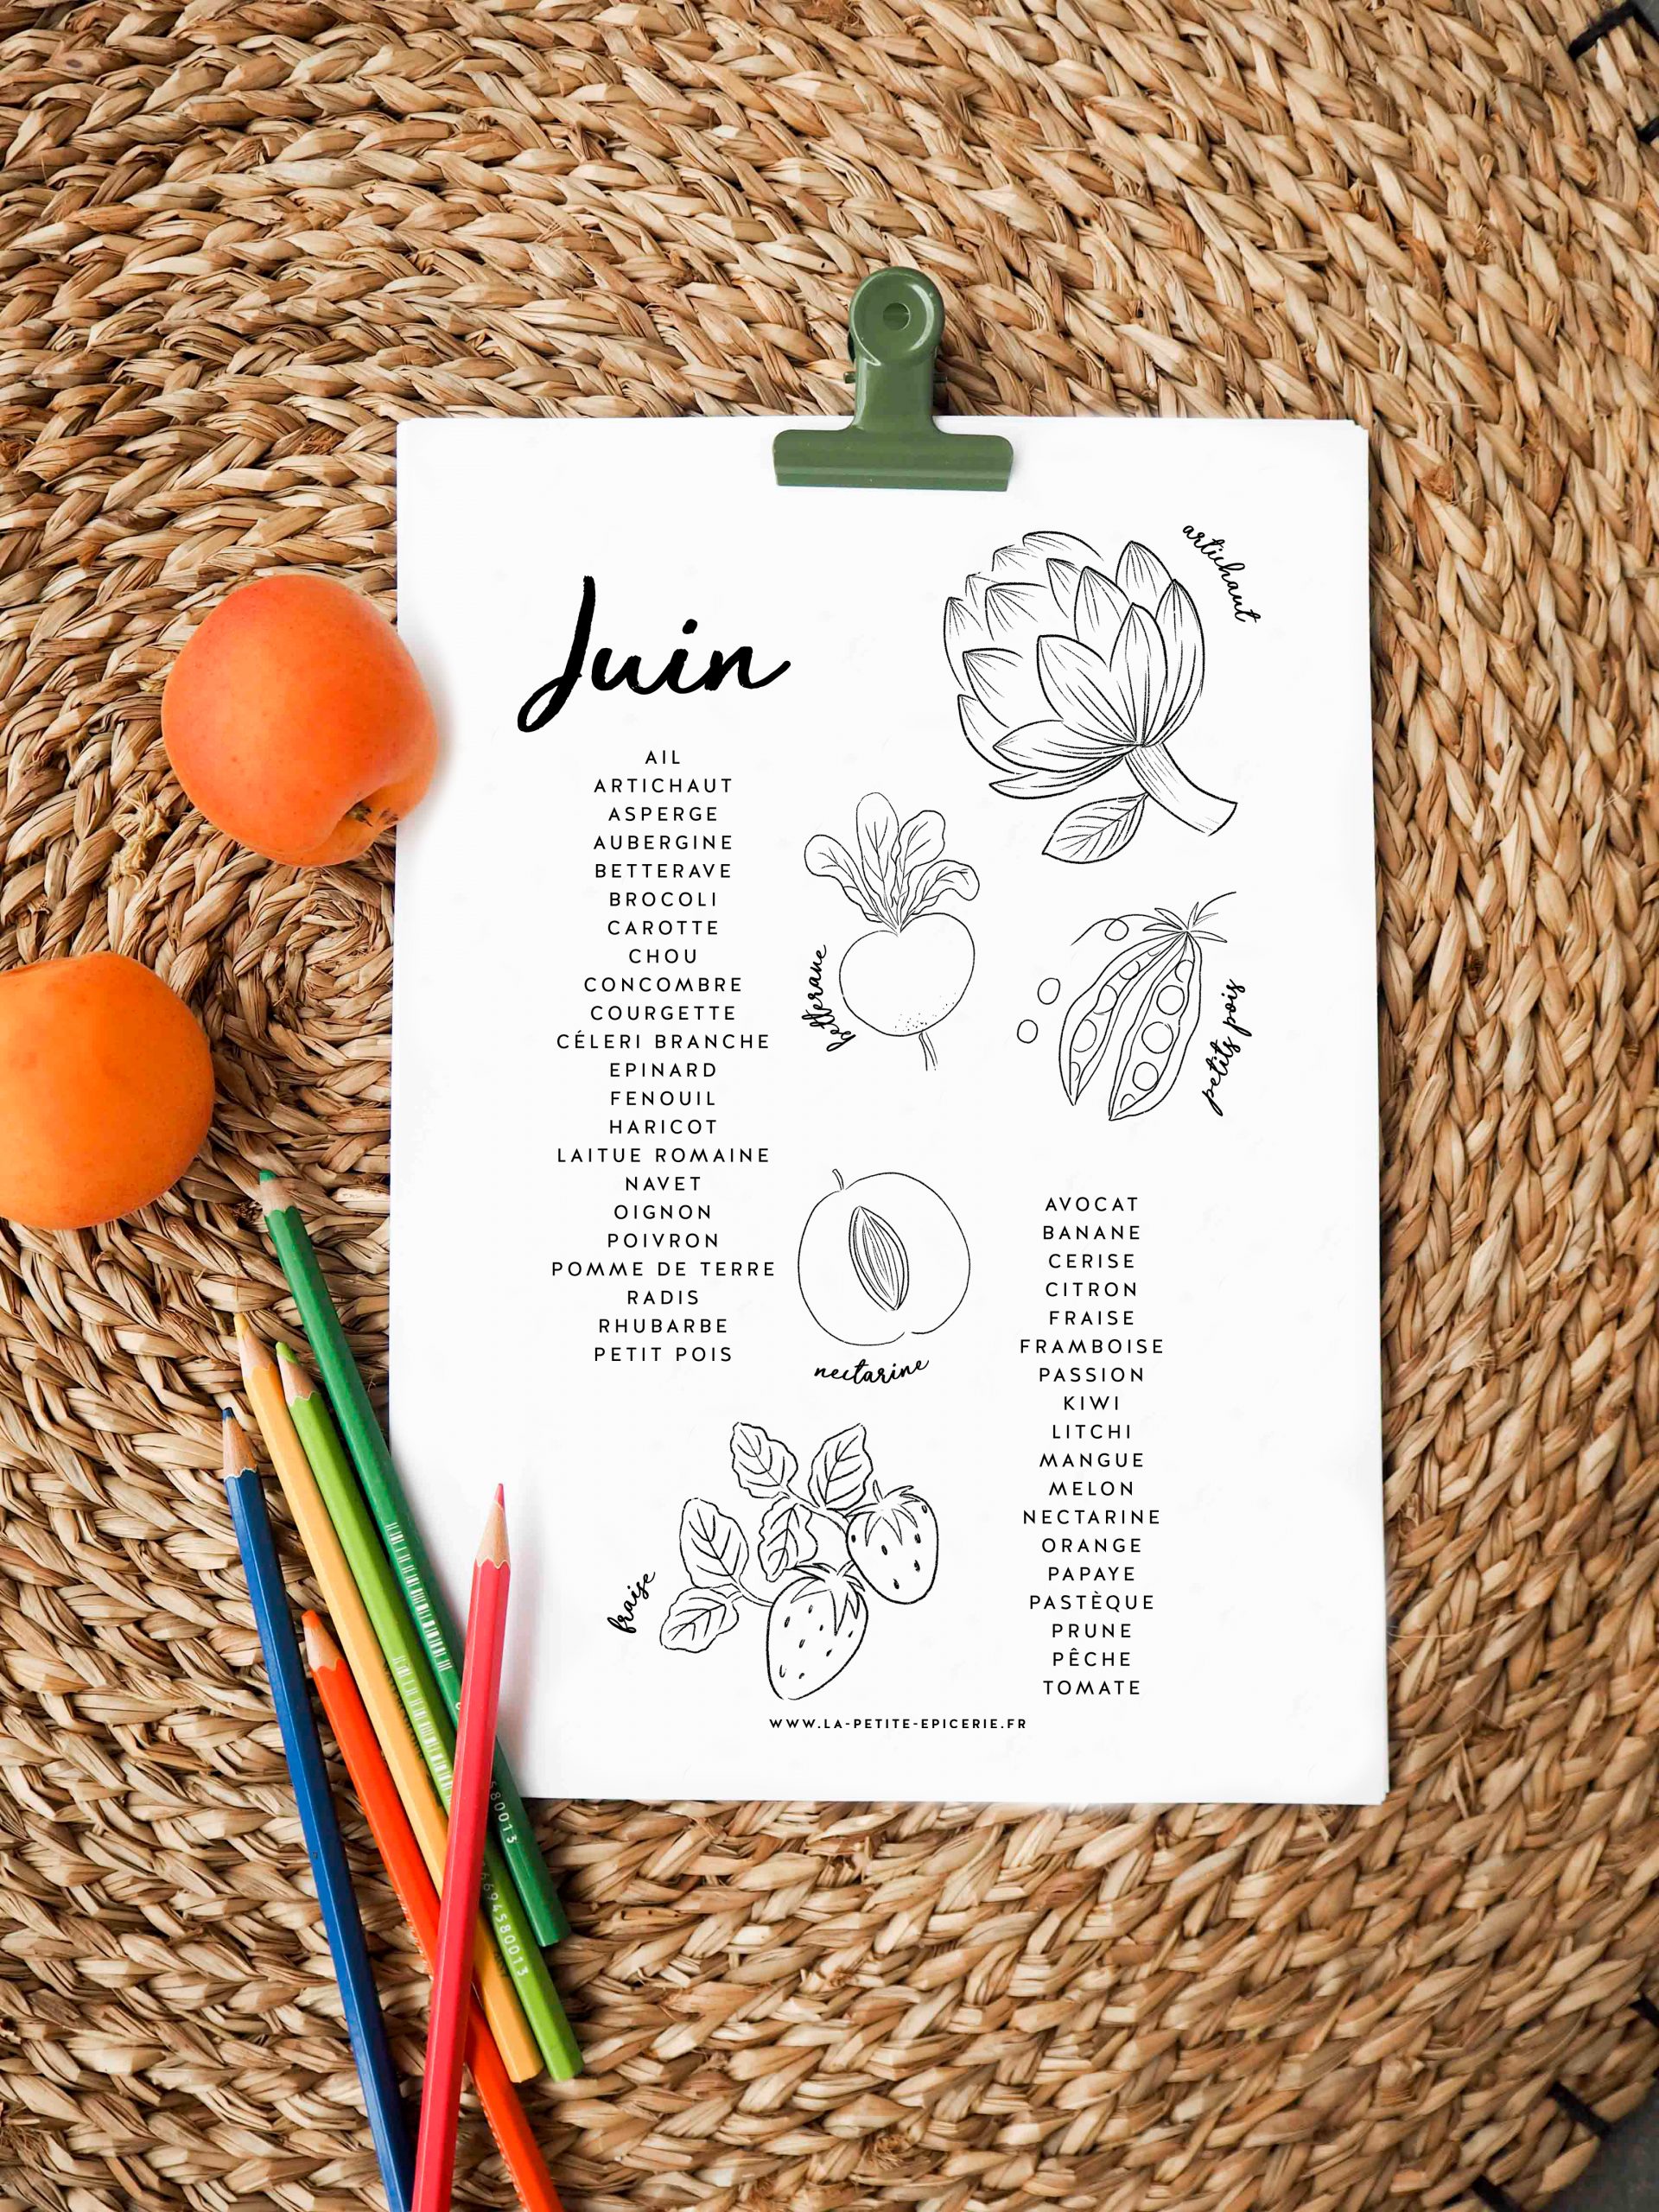 Juin
AIL
ARTICHAUT
ASPERGE
AUBERGINE
BETTERAVE
BROCOLI
CAROTTE
CHOU
CONCOMBRE
COURGETTE
CÉLERI BRANCHE
EPINARD
FENOUIL
HARICOT
LAITUE ROMAINE
NAVET
OIGNON
POIVRON
POMME DE TERRE
RADIS
RHUBARBE
PETIT POIS
artichaut
betterave
petits pois
nectarine
fraise
AVOCAT
BANANE
CERISE
CITRON
FRAISE
FRAMBOISE
PASSION
KIWI
LITCHI
MANGUE
MELON
NECTARINE
ORANGE
PAPAYE
PASTÈQUE
PRUNE
PÊCHE
TOMATE
WWW.LA-PETITE-EPICERIE.FR
580013
694580013